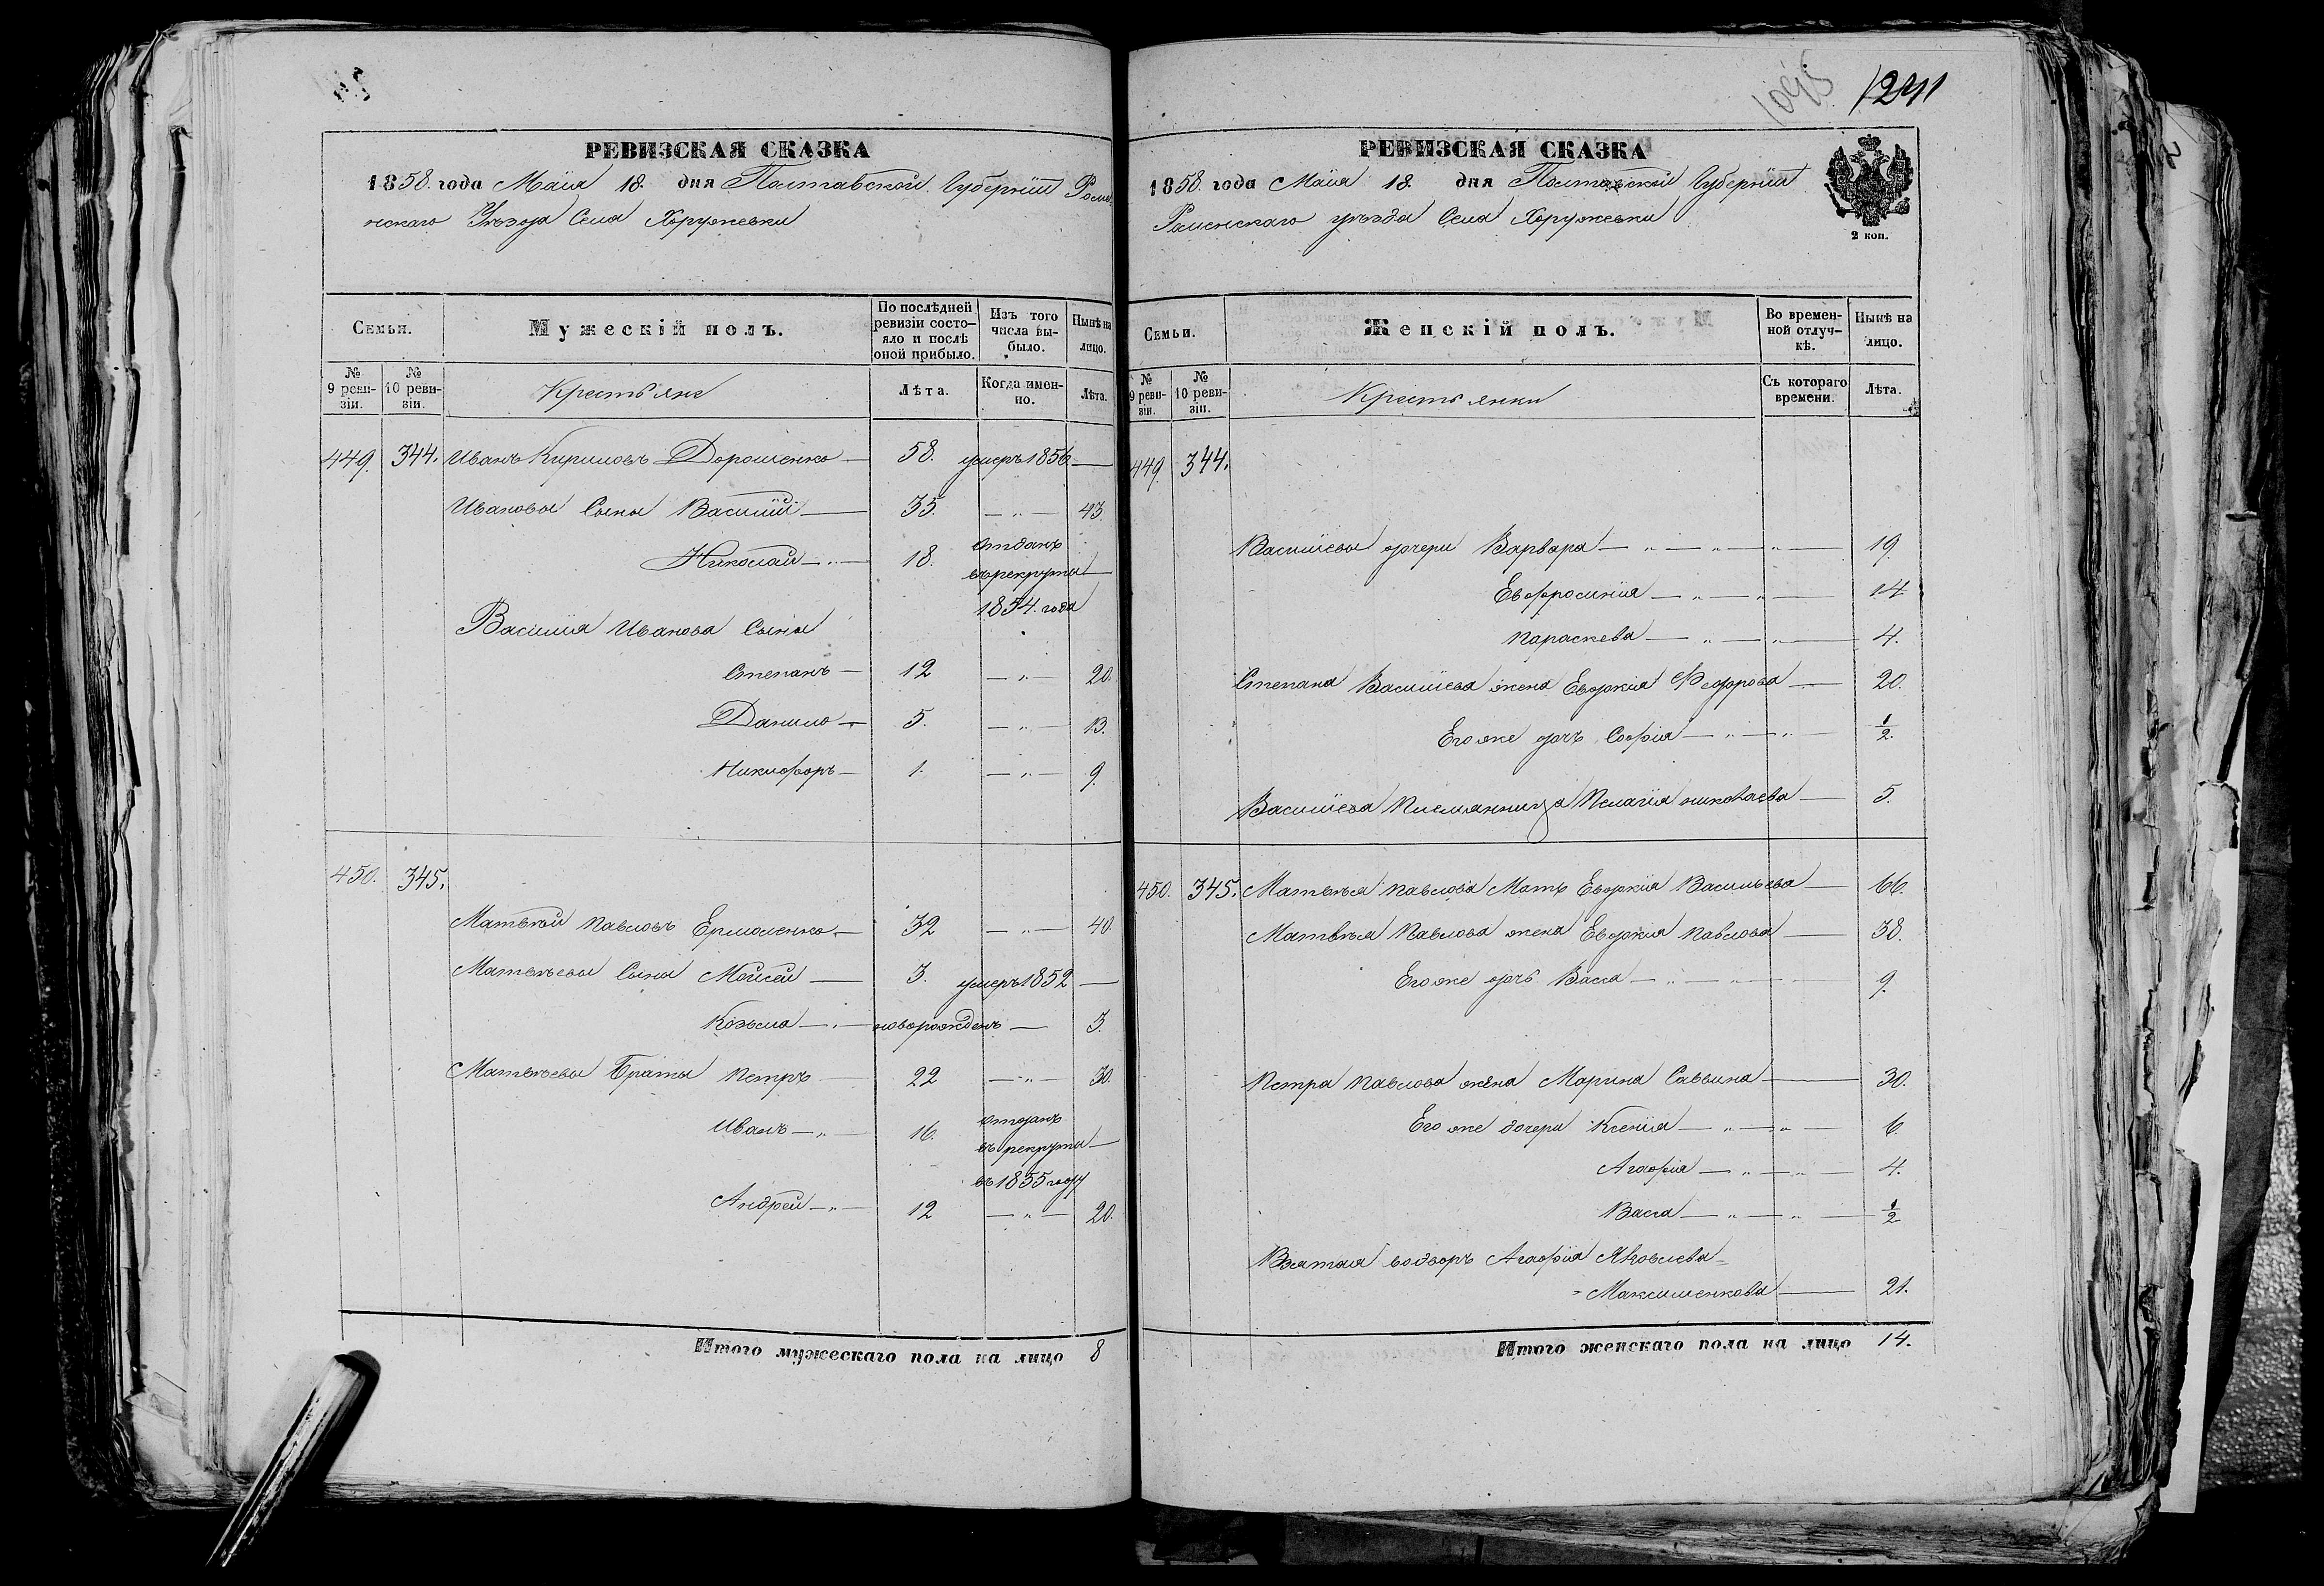 РЕВИЗСКАЯ СКАЗКА
1858. года Маія 18. дня Полтавской Губерніи Роме-
нскаго Уѣзда Села Хоружевки
Семьи.
Мужескій полъ.
По послѣдней ревизіи состо-
яло и послѣ оной прибыло.
Изъ того числа вы-
было.
Нынѣ на лицо.
№ 9 реви-
зіи.
№ 10 реви-
зіи.
Крестьяне
Лѣта.
Когда имен-
но.
Лѣта.
449. 344. Иванъ Кириловъ Дорошенко — 58. умеръ 1856 —
Ивановы Сыны Василій — 35. — „ — 43.
Николай — „ — 18. отданъ
въ рекруты —
1854. года
Василія Иванова Сыны
Степанъ — 12 — „ — 20.
Данило — 5. — „ — 13.
Никифоръ — 1. — „ — 9.
450. 345.
Матвѣй Павловъ Ермоленко — 32 — „ — 40.
Матвѣевы Сыны Моисей — 3. умеръ 1852 —
Козьма — „ — новорожденъ — 3.
Матвѣевы Браты Петръ — 22 — „ — 30.
Иванъ — „ — 16. отданъ
въ рекруты —
въ 1855 году
Андрей — „ — 12 — „ — 20.
Итого мужескаго пола на лицо 8
1095 1241
РЕВИЗСКАЯ СКАЗКА
1858. года Маія 18. дня Полтавской Губерніи
Роменскаго уѣзда Села Хоружевки
2 коп.
Семьи.
Женскій полъ.
Во времен-
ной отлуч-
кѣ.
Нынѣ на лицо.
№ 9 реви-
зіи.
№ 10 реви-
зіи.
Крестьянки
Съ котораго времени.
Лѣта.
449. 344.
Василіевы дочери Варвара — „ — „ — „ — 19.
Евфросинія — „ — „ — 14
Параскева — „ — „ — 4.
Степана Василіева жена Евдокія Федорова — 20.
Его же дочь Софія — „ — „ — 1/2.
Василіева Племянница Пелагія Николаева — 5.
450. 345. Матвѣя Павлова Мать Евдокія Васильева — 66.
Матвѣя Павлова жена Евдокия Павлова — 38.
Его же дочь Васса — „ — „ — 9.
Петра Павлова жена Марина Саввина — 30.
Его же дочери Ксенія — „ — „ — 6.
Агафія — „ — „ — 4.
Васса — „ — „ — 1/2
Взятая водворъ Агафія Яковлева —
Максименкова — 21.
Итого женскаго пола на лицо 14.